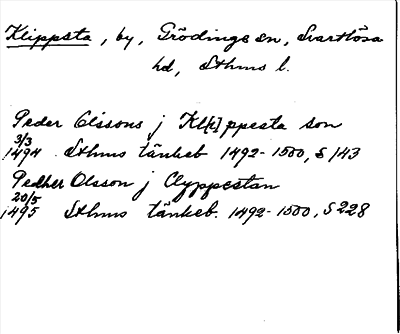 Klippsta, by, Grödinge sn, Svartlösa
hd, Sthms l.
Peder Olssons j Kl[i]ppesta son
3/3
1494. Sthms tänkeb 1492-1500, S 143
Pedher Olsson j Clyppestan
20/5
1495 Sthms tänkeb. 1492-1500, S 228